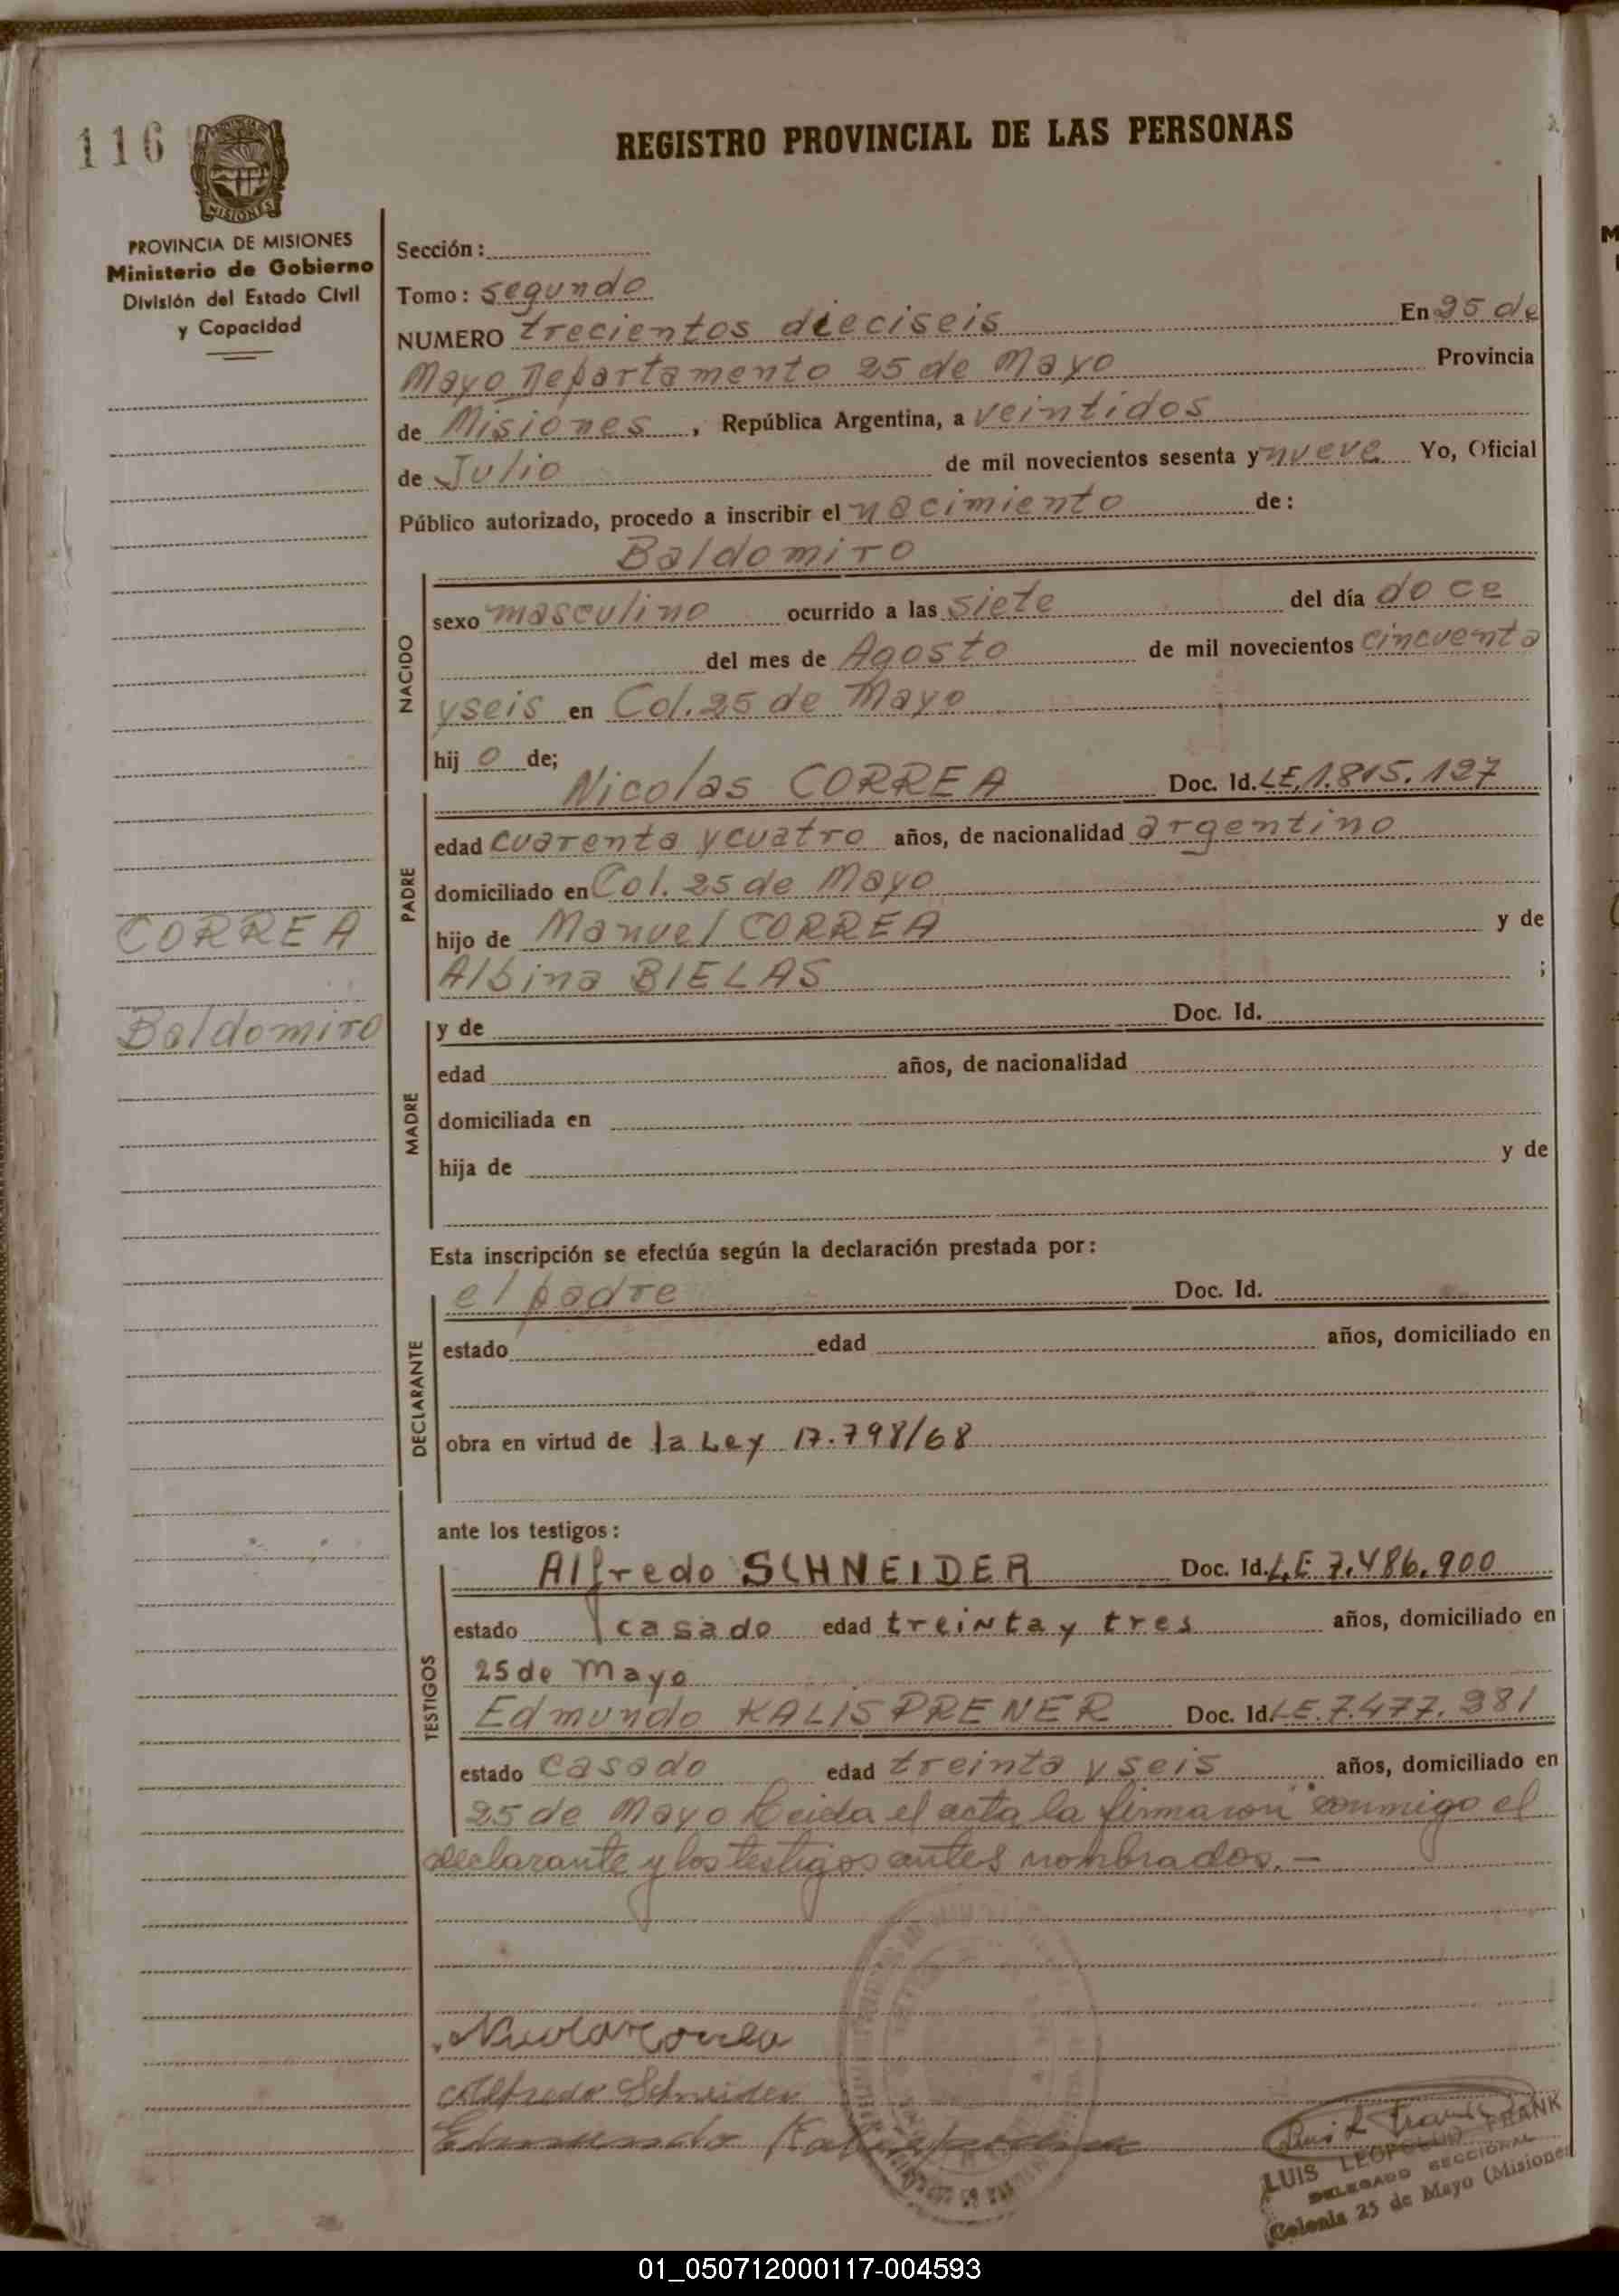 116
PROVINCIA DE MISIONES
Ministerio de Gobierno
División del Estado Civil
y Capacidad
REGISTRO PROVINCIAL DE LAS PERSONAS
Sección:
Tomo: segundo
NUMERO trecientos dieciseis En 25 de
Mayo Departamento 25 de Mayo Provincia
de Misiones, República Argentina, a veintidos
de Julio de mil novecientos sesenta y nueve Yo, Oficial
Público autorizado, procedo a inscribir el nacimiento de:
Baldomiro
NACIDO
sexo masculino ocurrido a las siete del día doce
del mes de Agosto de mil novecientos cincuenta
y seis en Col. 25 de Mayo
hij o de;
PADRE
Nicolas CORREA Doc. Id. LE.1.815.127
edad cuarenta y cuatro años, de nacionalidad argentino
domiciliado en Col. 25 de Mayo
hijo de Manuel CORREA y de
Albina BIELAS ;
CORREA
Baldomiro
MADRE
y de Doc. Id.
edad años, de nacionalidad
domiciliada en
hija de y de
Esta inscripción se efectúa según la declaración prestada por:
DECLARANTE
el padre Doc. Id.
estado edad años, domiciliado en
obra en virtud de la Ley 17.798/68
ante los testigos:
TESTIGOS
Alfredo SCHNEIDER Doc. Id. L.E 7.486.900
estado casado edad treinta y tres años, domiciliado en
25 de Mayo
Edmundo KALISPRENER Doc. Id. LE.7.477.981
estado casado edad treinta y seis años, domiciliado en
25 de Mayo Leida el acta la firmaron conmigo el
declarante y los testigos antes nombrados.-
Nicolas Correa
Alfredo Schneider
Edmundo
Luis L Frank
LUIS LEOPOLDO FRANK
DELEGADO SECCIONAL
Colonia 25 de Mayo (Misiones
01_050712000117-004593